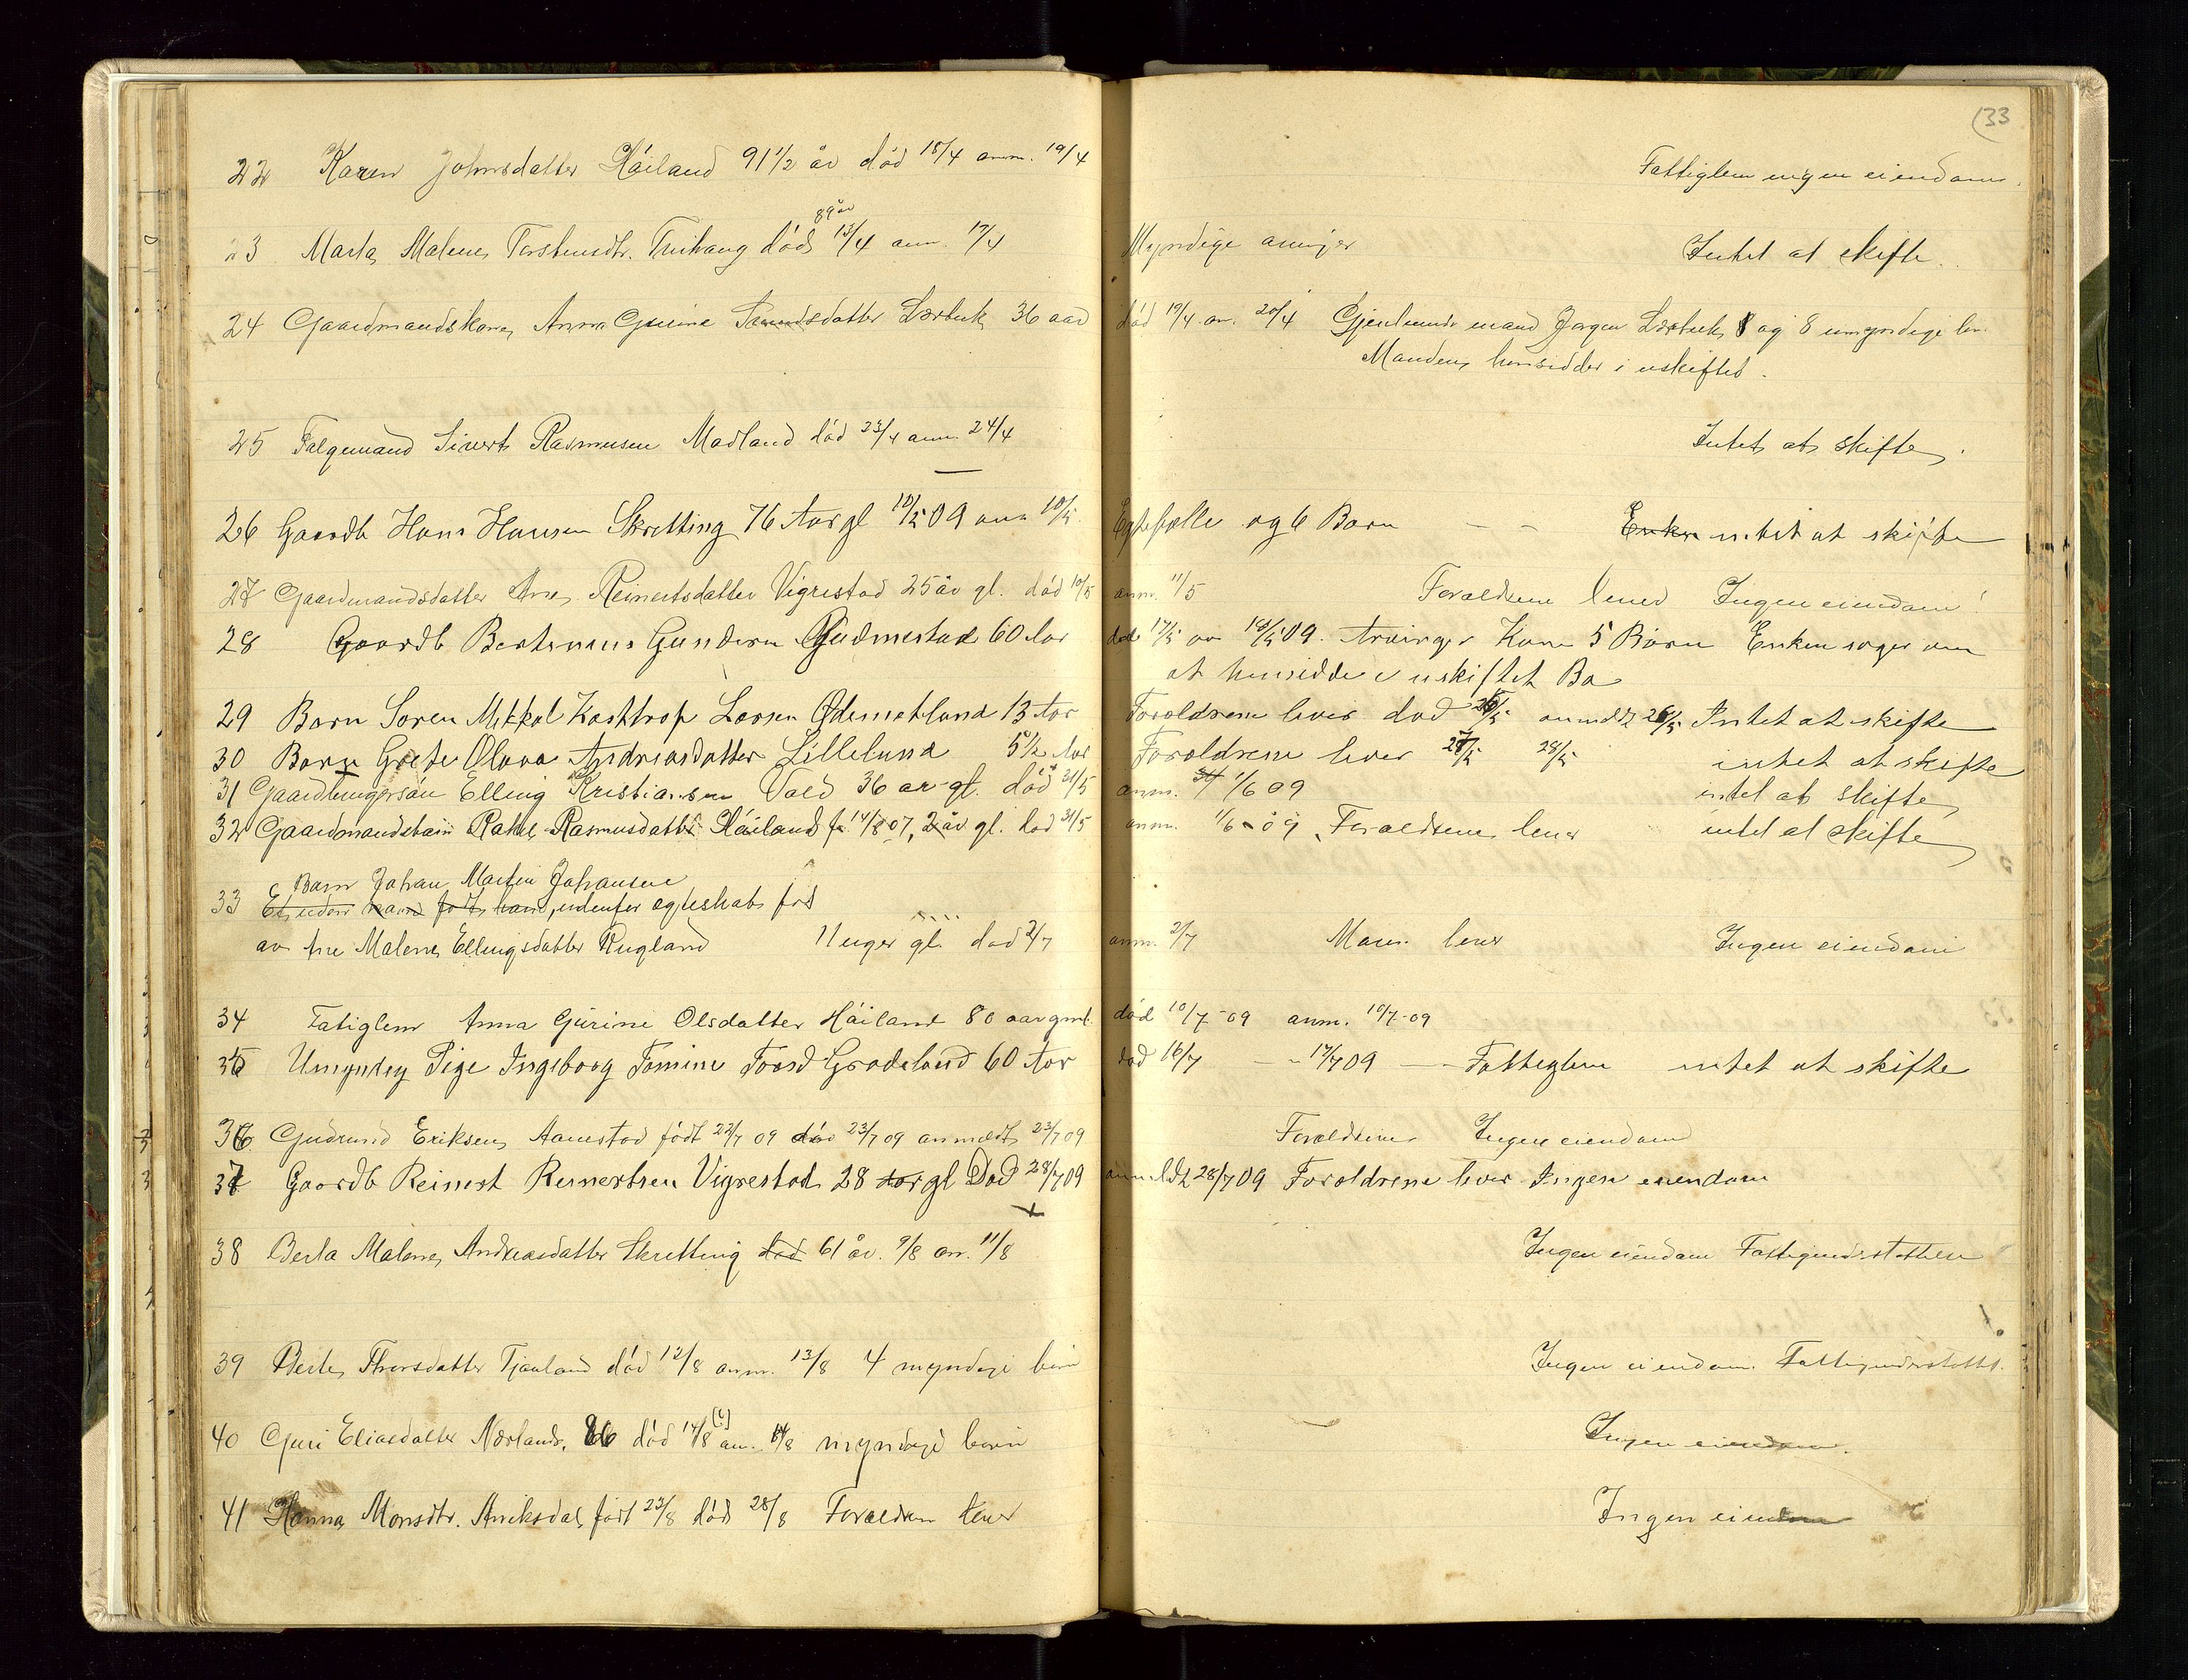 (33
22 Karen Johnsdatter Håiland 91 1/2 år død 18/4 anm. 19/4 Fattiglem ingen eiendom.
89 år
23 Marta Malene Torstensdtr. død 13/4 anm. 17/4 Myndige arvinger Intet at skifte.
24 Gaardmandskone Anna Gurine datter Lerbrek 36 aar død 19/4 an. 20/4 mand Jørgen Lerbrek og 8 umyndige
Manden hensidder i uskiftet.
25 Følgemand Sivert Rasmusen Madland død 23/4 anm. 24/4 Intet at skifte.
26 Gaardb Hans Hansen Skretting 76 Aar gl 10/5 09 anm 10/5 Egtefælle og 6 Børn - - Enken intet at skifte
27 Gaardmandsdatter Ane Reinertsdatter Vigrestad 25 år gl. død 10/5 anm. 11/5 Foraldrene lever Ingen eiendom!
28 Gaardb Bertinius Gundersn Gudmestad 60 Aar død 17/5 an 18/5 09. Arvinger Kone 5 Børn Enken søger om
at hensidde i uskiftet Bo
29 Barn Soren Mikkal Kasttrop Larsen Ødemotland 13 Aar Foraldrene lever død 26/5 anmeldt 26/5 Intet at skifte
30 Barn Grete Olava Andreasdatter Lillelund 5 1/2 Aar Foraldrene lever 27/5 28/5 intet at skifte
31 Gaardbrugersøn Elling Kristiansen Vold 36 ar gl. død 31/5 anm. 1/6 09 intet at skifte
32 Gaardmandsbarn Rakel Rasmusdatter Håiland f. 14/8 07, 2 år gl. død 31/5 anm. 1/6 - 09, Foraldrene lever intet at skifte
Barn Johan Martin Johansen
33 Et uden navn født barn, udenfor egteskab fød
av Ane Malene Ellingsdatter Rugland 11 uger gl. død 2/7 anm. 2/7 Moren lever Ingen eiendom
34 Fatiglem Anna Gurine Olsdatter Håiland 80 aar gml. død 10/7 - 09 anm. 10/7 - 09
35 Umyndig Pige Ingeborg Tomine Grødeland 60 Aar død 16/7 — " 17/7 09 — Fattiglem intet at skifte
36 Gudrund Eriksen Aanestad født 22/7 09 død 23/7 09 anmeldt 23/7 09 Foraldrene Ingen eiendom
37 Gaardb Reinert Reinertsen Vigrestad 28 Aar gl Død 28/7 09 anmeldt 28/7 09 Foroldrene lever Ingen eiendom
38 Berta Malene Andreasdatter Skretting død 61 år. 9/8 an. 11/8 Ingen eiendom Fattigunderstøttelse
39 Berte Thorsdatter Tjaaland død 12/8 anm. 13/8 4 myndige børn Ingen eiendom. Fattigunderstøttet.
40 Guri Eliasdatter Nærland, 86 død 14/8 an. 14/8 myndige børn Ingen eiendom.
41 Hanna Monsdtr. Aniksdal født 23/8 død 28/8 Foraldren lever Ingen eiendom